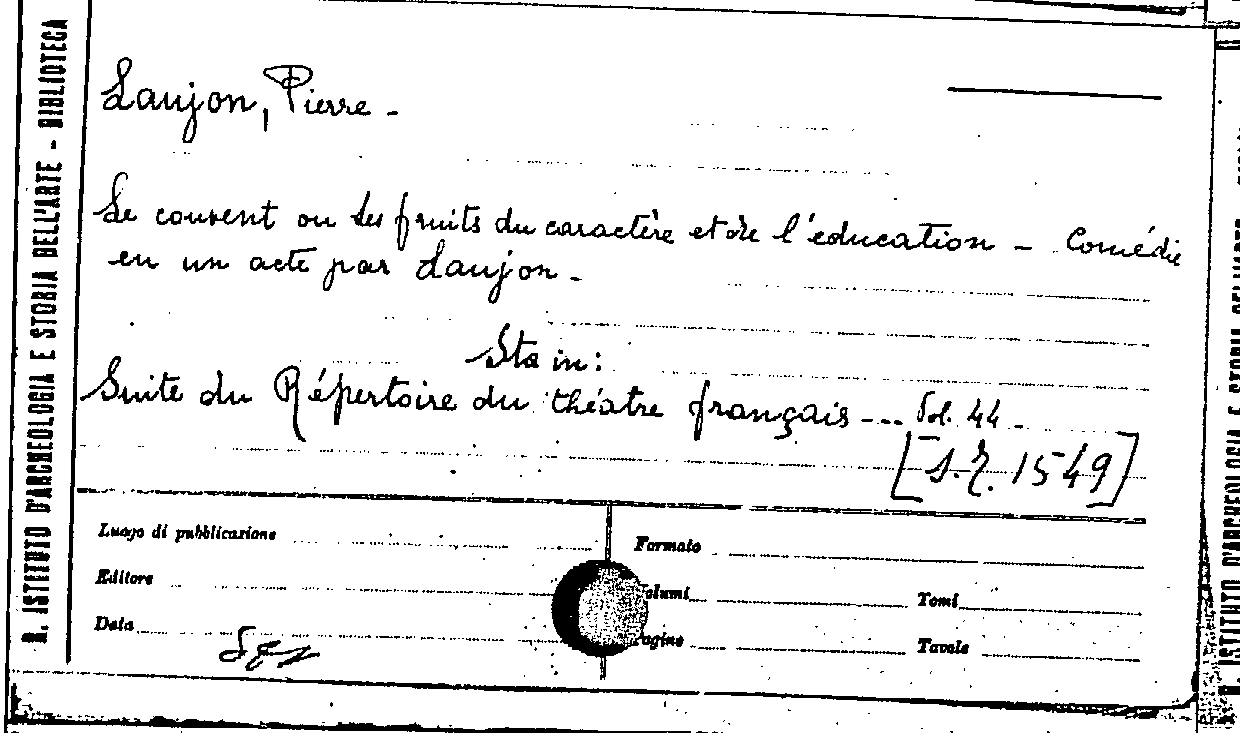 R. ISTITUTO D'ARCHEOLOGIA E STORIA DELL'ARTE - BIBLIOTECA
Laujon, Pierre -
Le couvent ou les fruits du caractère et de l'éducation - Comédie
en un acte par Laujon -
Sta in:
Suite du Répertoire du théatre français --- Vol. 44 -
[S.R. 1549]
Luogo di pubblicazione
Formato
Editore
Volumi
Tomi
Data
Pagine
Tavole